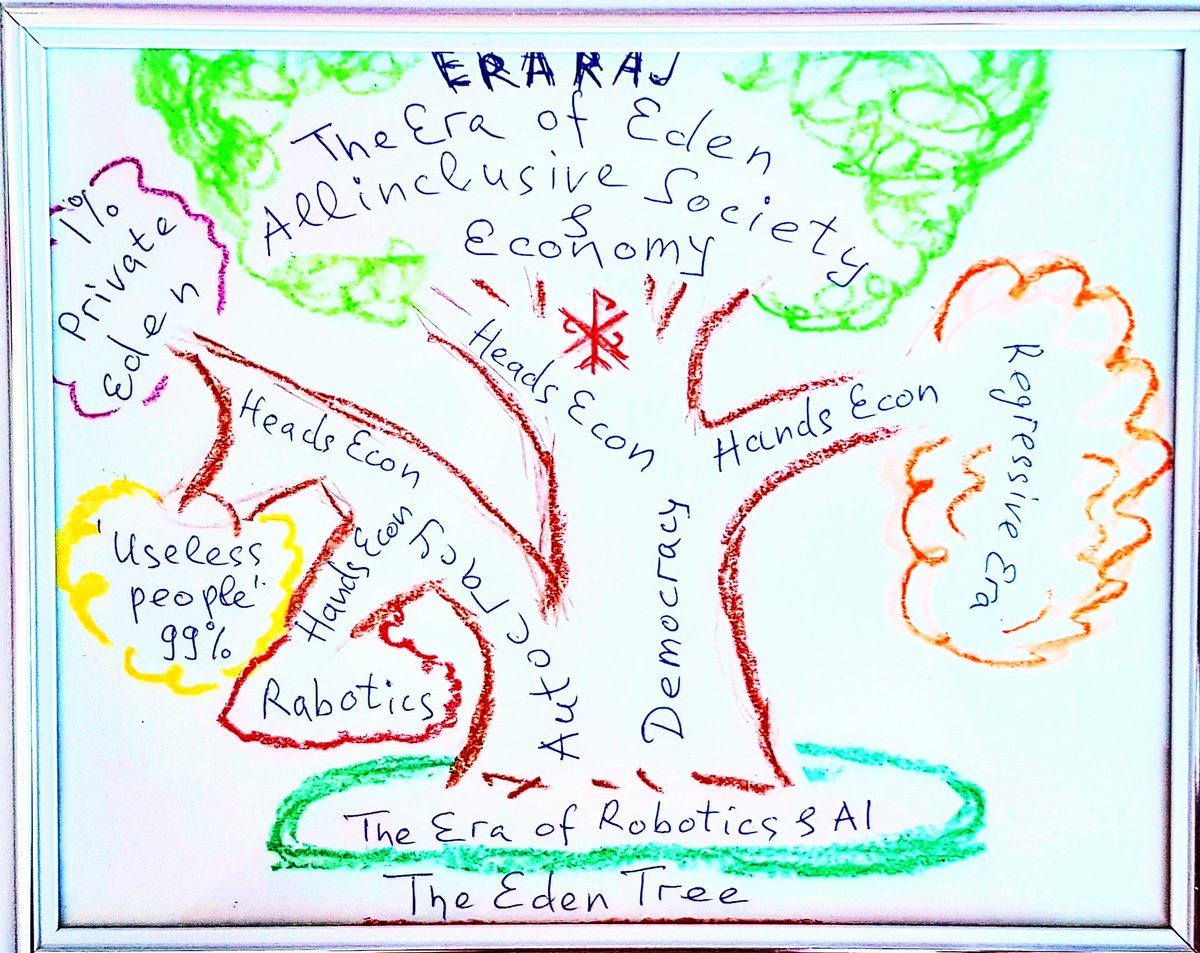 ERARAJ
The Era of Eden
Allinclusive Society
&
Economy
1%
Private
Eden
Heads Econ
Heads Econ
Hands Econ
Regressive Era
'Useless
people'
99%
Hands Econ
Autocracy
Democracy
Rabotics
The Era of Robotics & AI
The Eden Tree